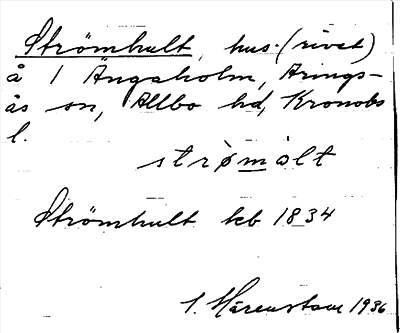 Strömhult, hus (rivet)
å 1 Ängaholm, Arings-
ås sn, Allbo hd, Kronobs
l.
strömölt
Strömhult kb 1834
1936